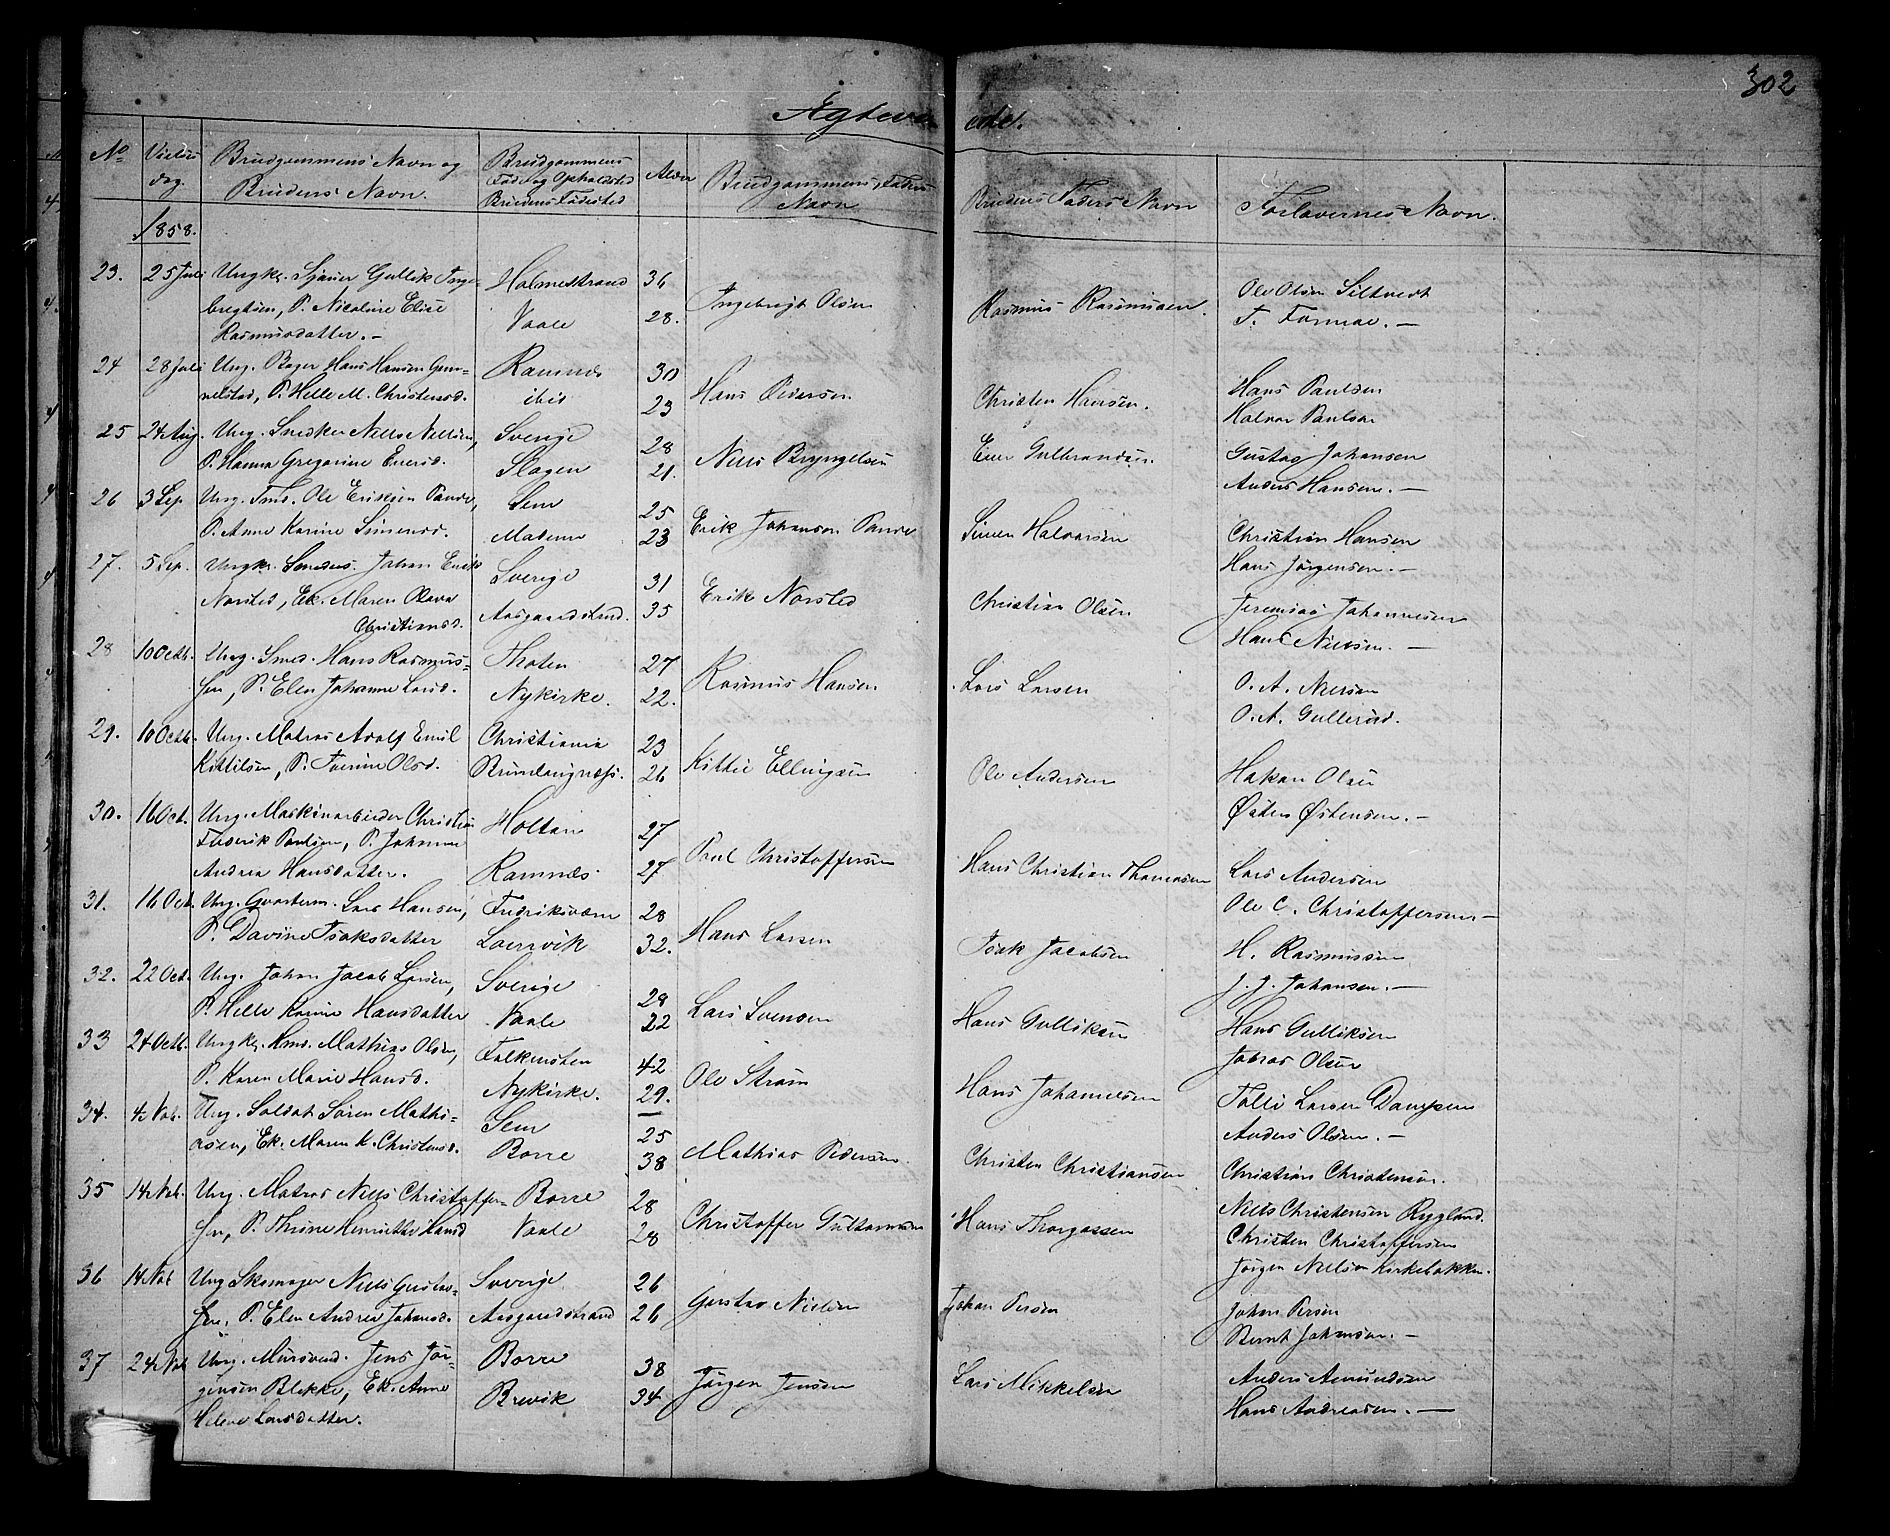 302
Ægtevi ede.
No
Vielses
dag.
Brudgommens Navn og
Brudens Navn.
Brudgommens
Føde og Opholdsted
Brudens Fødested
Alder
Brudgommens Faders
Navn
Brudens Faders Navn
Forlovernes Navn.
1858.
23. 25 Juli Ungk. Sjauer Gullik Inge- Holmestrand 36
bregtsen, P. Nicoline Elise Vaale 28. Ingebregt Olsen Rasmus Rasmussen. Ole Olsen
Rasmusdatter. —
24 28 Juli Ung. Bager Hans Hansen Ramnæs 30 Hans Pedersen Christen Hansen. Hans Paulsen
P. Helle M. Christensd. ibid 23 Halvor Paulsen
25 24 Aug. Ung. Snedker Niels Nielsen, Sverige 28 Niels Bryngelsen Ever Gulbrandsen. Gustav Johansen
P. Hanna Gregorine Eversd. Slagen 21. Anders Hansen. —
26 3 Sep. Ung. Tmd. Ole Eriksen Sem 25 Erik Johansen Simen Halvorsen Christian Hansen
P. Anne Karine Simensd. 23 Hans Jörgensen. —
27. 5 Sep. Ungk. Johan Sverige 31 Erik Norsted Christian Olsen Jeremias Johannesen
Norsted, Ek. Maren Olava Aasgaardstrand. 35 Hans Nielsen. —
Christiansd.
28 10 Octb. Ung. Smed. Hans Rasmus- Thoten 27 Rasmus Hansen Lars Larsen O. A. Nielsen
sen, P. Elen Johanne Larsd. Nykirke. 22. O. A. Gullerud.
29. 10 Octb. Ung. Matros Adolf Emil Christiania 23 Kittil Ellingsen Ole Andersen Hakon Olsen
Kittilsen, P. Olsd. 26 Østen Østensen. —
30. 16 Oct. Ung. Maskinarbeider Christian Holtan 27 Poul Christoffersen Hans Christian Thomesen Lars Andersen
Frederik Paulsen, P. Johanne Ramnæs 27 Ole C. Christoffersen —
Andrea Hansdatter.
31. 16 Oct. Ung. Qvarterm. Lars Hansen, Fredriksværn 28 Hans Larsen Isak Jacobsen H. Rasmussen
P. Davine Isaksdatter Laurvik 32. J. J. Johansen. —
32. 22 Oct. Ung. Johan Jacob Larsen, Sverige 29 Lars Svensen Hans Gulliksen Hans Gulliksen
P. Helle Karine Hansdatter Vaale 22
33 24 Octb. Ungk. Hmd. Mathias Olsen, Falkensten 42 Ole Strøm Hans Johannesen
P. Karen Marie Hansd. Nykirke. 29. Anders Olsen. —
34. 4 Nov. Ung. Soldat Søren Mathi- Sem 25 Mathias Pedersen. Christen Christiansen Christian Christensen.
asen, Ek. Maren K. Christensd. Borre 38
35 14 Nov. Ung. Matros Niels Christoffer- Borre 28 Christoffer Hans Niels Christensen Rygland.
sen, P. Thrine Henriette Hansd Vaale 28 Christen Christoffersen
36 14 Nov Ung Skomager Niels Gustav- Sverige 26 Gustav Nielsen Johan Persen Jørgen Nielsen Kirkebakken.
sen, P. Elen Andrea Johansd. Aasgaardstrand 26 Johan Persen
Bernt Johansen. —
37 24 Nov Ung. Mursvend. Jens Jør- Borre 38 Jørgen Jensen Lars Mikkelsen Anders Amundsen
gensen Blekke, Ek. Anne Brevik 34 Hans Andreasen. —
Helene Larsdatter.